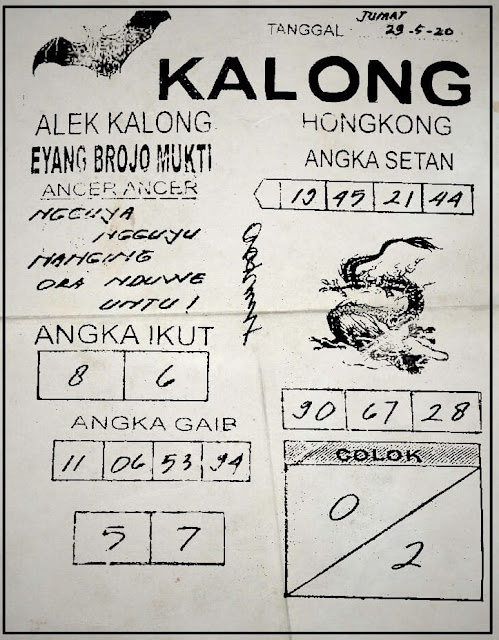 JUMAT
TANGGAL : 29-5-20
KALONG
ALEK KALONG
EYANG BROJO MUKTI
ANCER ANCER
NGGUYA
NGGUYU
NANGING
ORA NDUWE
UNTU!
ANGKA IKUT
8 6
ANGKA GAIB
11 06 53 94
5 7
HONGKONG
ANGKA SETAN
19 45 21 44
90 67 28
COLOK
0
2